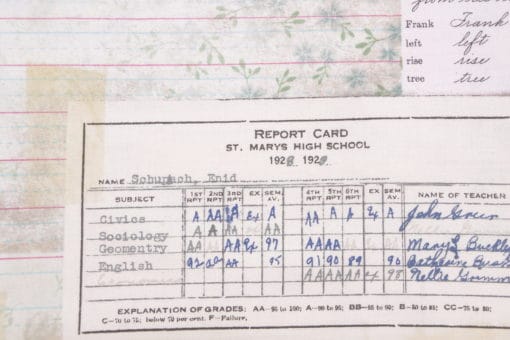 Frank Frank
left left
rise rise
tree tree
REPORT CARD
ST. MARYS HIGH SCHOOL
1928 1929
NAME Schupach, Enid
SUBJECT 1ST RPT 2ND RPT 3RD RPT EX SEM. AV. 4TH RPT 5TH RPT 6TH RPT EX SEM. AV. NAME OF TEACHER
Civics A AA A Ex A AA A A Ex A John Green
Sociology A A AA AA AA
Geomentry AA AA Ex 97 AA AA Mary L Buckley
English 92 AA 95 91 90 89 90 Catharine
AA AA AA AA Ex 98 Nellie
EXPLANATION OF GRADES: AA-95 to 100; A-90 to 95; BB-85 to 90; B-80 to 85; CC-75 to 80;
C-70 to 75; below 70 per cent. F-Failure.